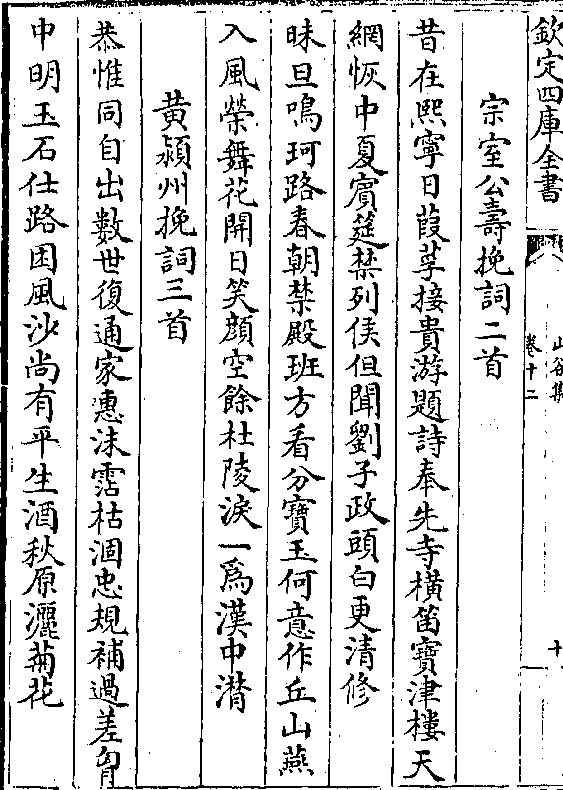 欽定四庫全書
山谷集
卷十二
十
宗室公壽挽詞二首
昔在熙寧日葭莩接貴游題詩奉先寺橫笛寶津樓天
網恢中夏賓筵禁列侯但聞劉子政頭白更清修
昧旦鳴珂路春朝禁殿班方看分寶玉何意作丘山燕
入風榮舞花開日笑顔空餘杜陵淚一爲漢中潸
黄潁州挽詞三首
恭惟同自出數世復通家惠沫霑枯涸忠規補過差胷
中明玉石仕路困風沙尚有平生酒秋原灑菊花